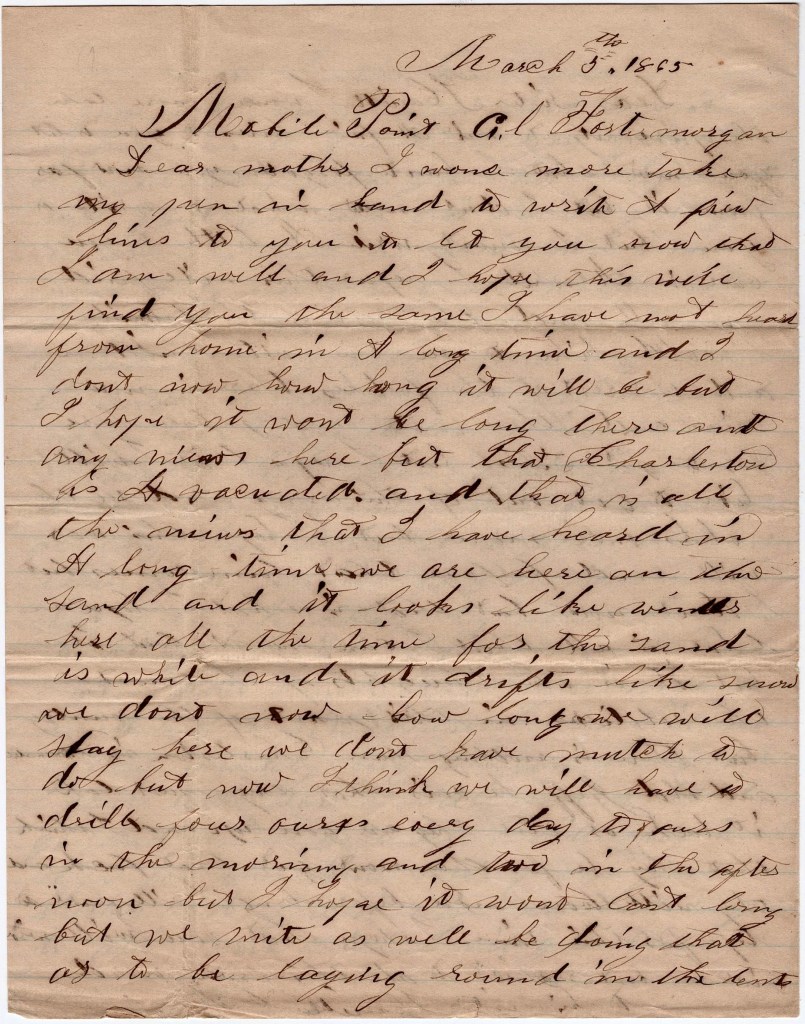 March 5th. 1865
Mobile Point Al Fort morgan
Dear mother I wonse more take
my pen in hand to write A fiew
lines to you to let you now that
I am well and I hope this will
find you the same I have not heard
from home in A long time and I
dont now how long it will be but
I hope it wont be long there aint
any niews here but that Charleston
is A vacuated. and that is all
the niews that I have heard in
A long time we are here an the
sand and it looks like winter
here all the time for the sand
is white and it drifts like snow
we dont now how long we will
stay here we dont have mutch to
do but now I think we will have to
drill four ours every day to ours
in the morning and two in the after
noon but I hope it wont last long
but we mite as well be doing that
as to be laying round in the tents